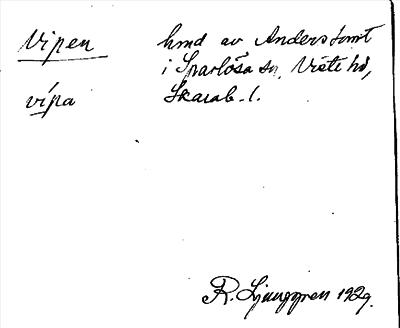 Vipen
hmd av Anderstomt
i Sparlösa sn, Viste hd,
vípa
Skarab. l.
R. Ljunggren 1929.